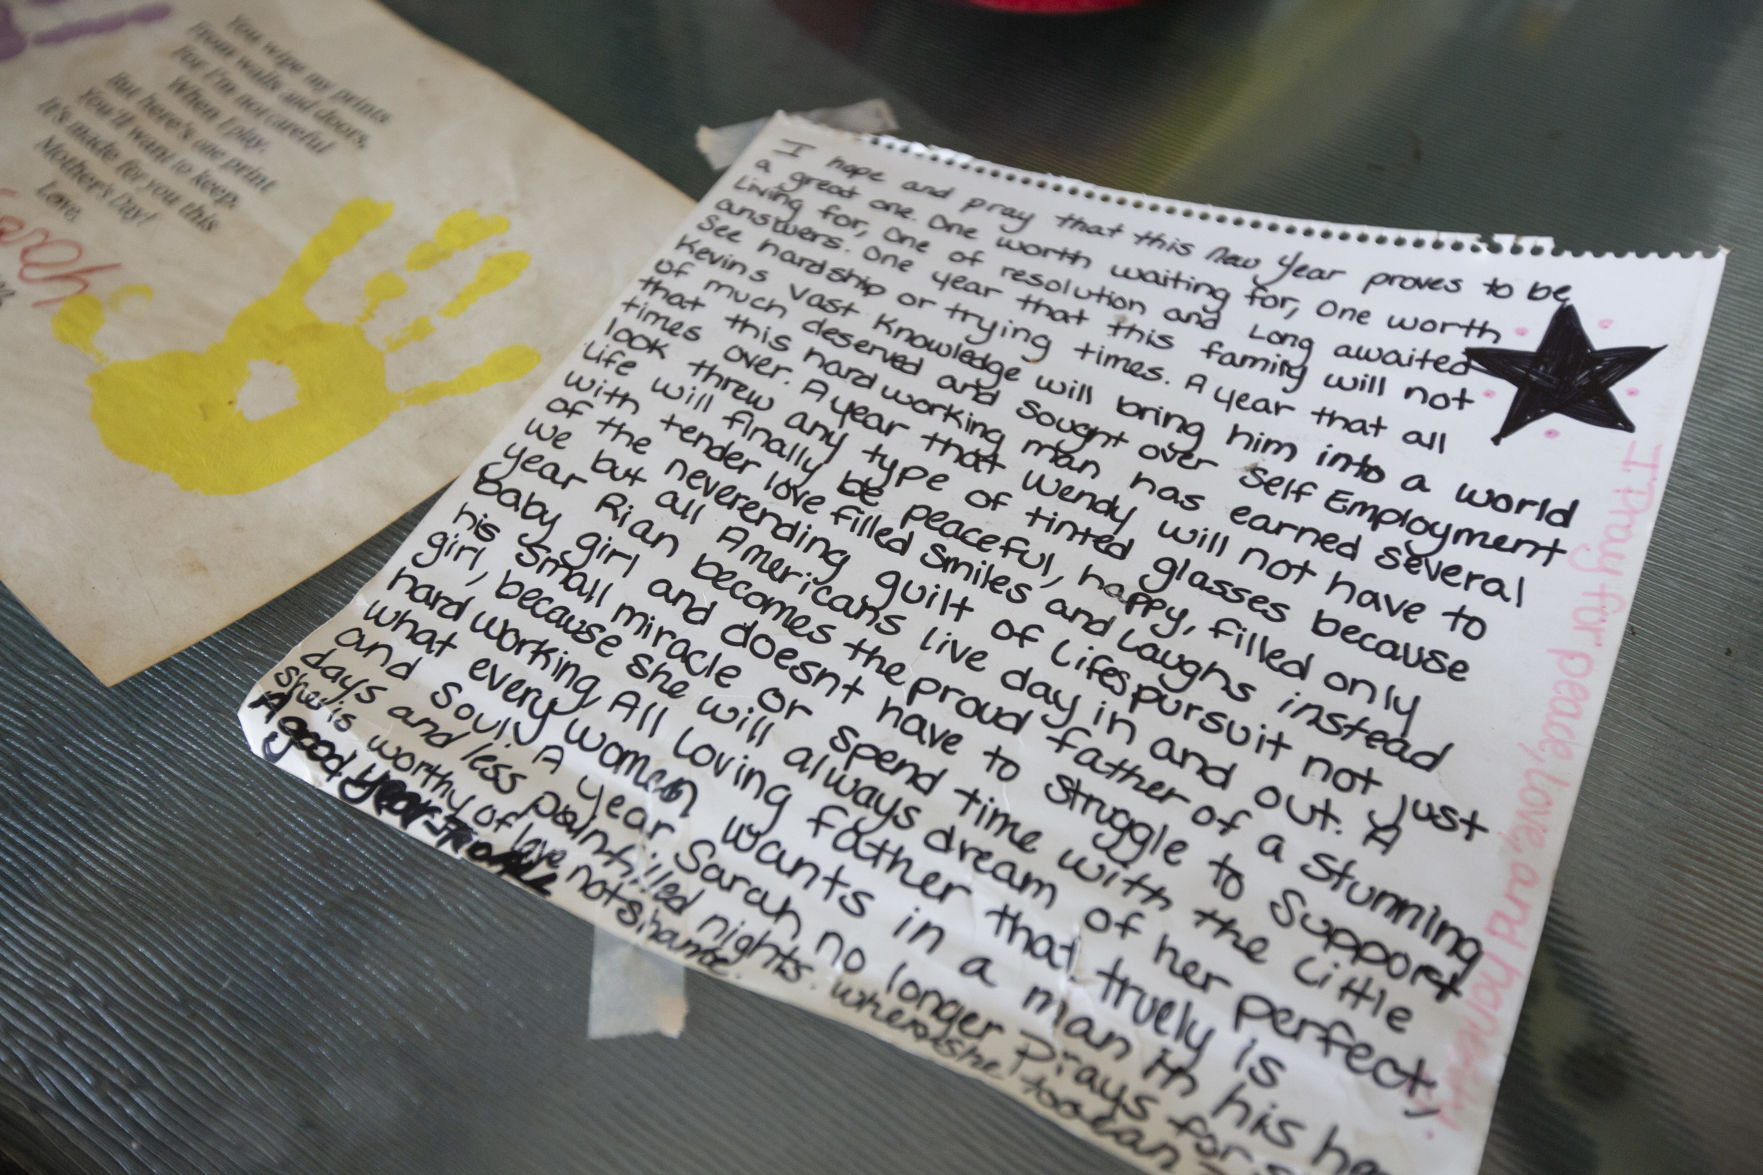 You wipe my prints
From walls and doors,
For I'm not careful
When I play.
But here's one print
You'll want to keep,
It's made for you this
Mother's Day!
Love,
Sarah
I hope and pray that this New Year proves to be
a great one. One worth waiting for, One worth
Living for, One of resolution and Long awaited
answers. One year that this family will not
See hardship or trying times. A year that all
Kevins Vast Knowledge will bring him into a world
of much deserved and Sought over Self Employment
that this hard working man has earned several
times over. A year that Wendy will not have to
look threw any type of tinted glasses because
Life will finally be peaceful, happy, filled only
with tender love filled Smiles and Laughs instead
of the neverending guilt of Lifes pursuit not just
we but all Americans live day in and out. A
year Rian becomes the proud father of a stunning
baby girl and doesnt have to struggle to Support
his small miracle or spend time with the Little
girl, because she will always dream of her perfect,
hard working, All Loving father that truely is
what every woman wants in a man in his
and soul. A year Sarah no longer Prays for
days and less painfilled nights. where she too can
she is worthy of love, not shame.
A good year
I Pray for peace, love, and honesty.